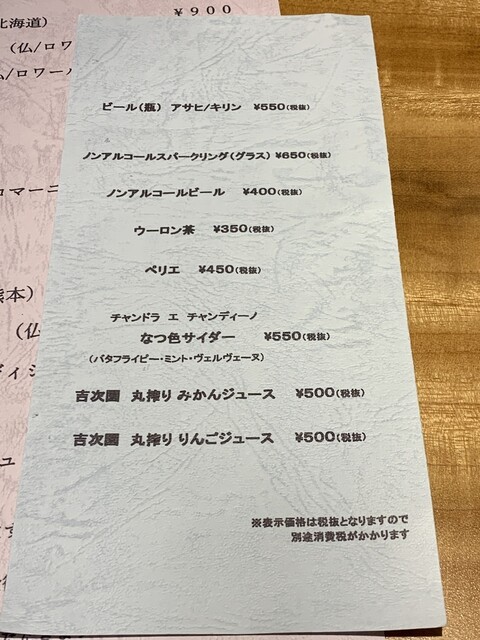 ¥900
北海道)
(仏/ロワ
ビール(瓶) アサヒ/キリン ¥550(税抜)
ノンアルコールスパークリング(グラス) ¥650(税抜)
ノンアルコールビール ¥400(税抜)
ウーロン茶 ¥350(税抜)
ペリエ ¥450(税抜)
チャンドラ エ チャンディーノ
なつ色サイダー ¥550(税抜)
(バタフライピー・ミント・ヴェルヴェーヌ)
吉次園 丸搾り みかんジュース ¥500(税抜)
吉次園 丸搾り りんごジュース ¥500(税抜)
※表示価格は税抜となりますので
別途消費税がかかります
ロマーニ
熊本)
(仏